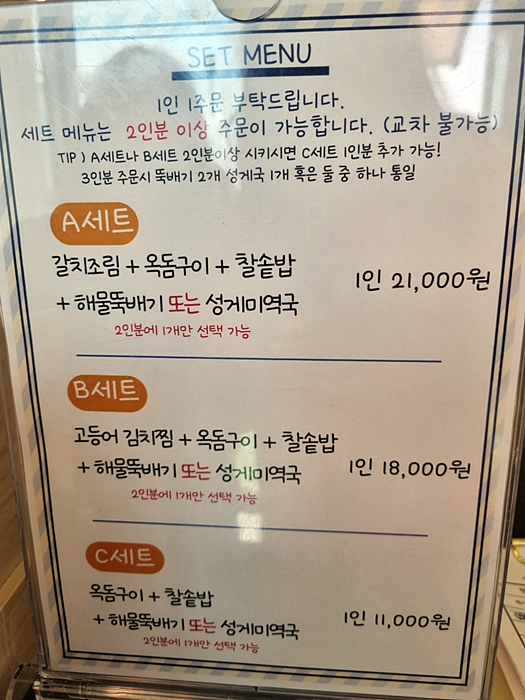 SET MENU
1인 1주문 부탁드립니다.
세트 메뉴는 2인분 이상 주문이 가능합니다. (교차 불가능)
TIP ) A세트나 B세트 2인분이상 시키시면 C세트 1인분 추가 가능!
3인분 주문시 뚝배기 2개 성게국 1개 혹은 둘 중 하나 통일
A세트
갈치조림 + 옥돔구이 + 찰솥밥
+ 해물뚝배기 또는 성게미역국
2인분에 1개만 선택 가능
1인 21,000원
B세트
고등어 김치찜 + 옥돔구이 + 찰솥밥
+ 해물뚝배기 또는 성게미역국
2인분에 1개만 선택 가능
1인 18,000원
C세트
옥돔구이 + 찰솥밥
+ 해물뚝배기 또는 성게미역국
2인분에 1개만 선택 가능
1인 11,000원